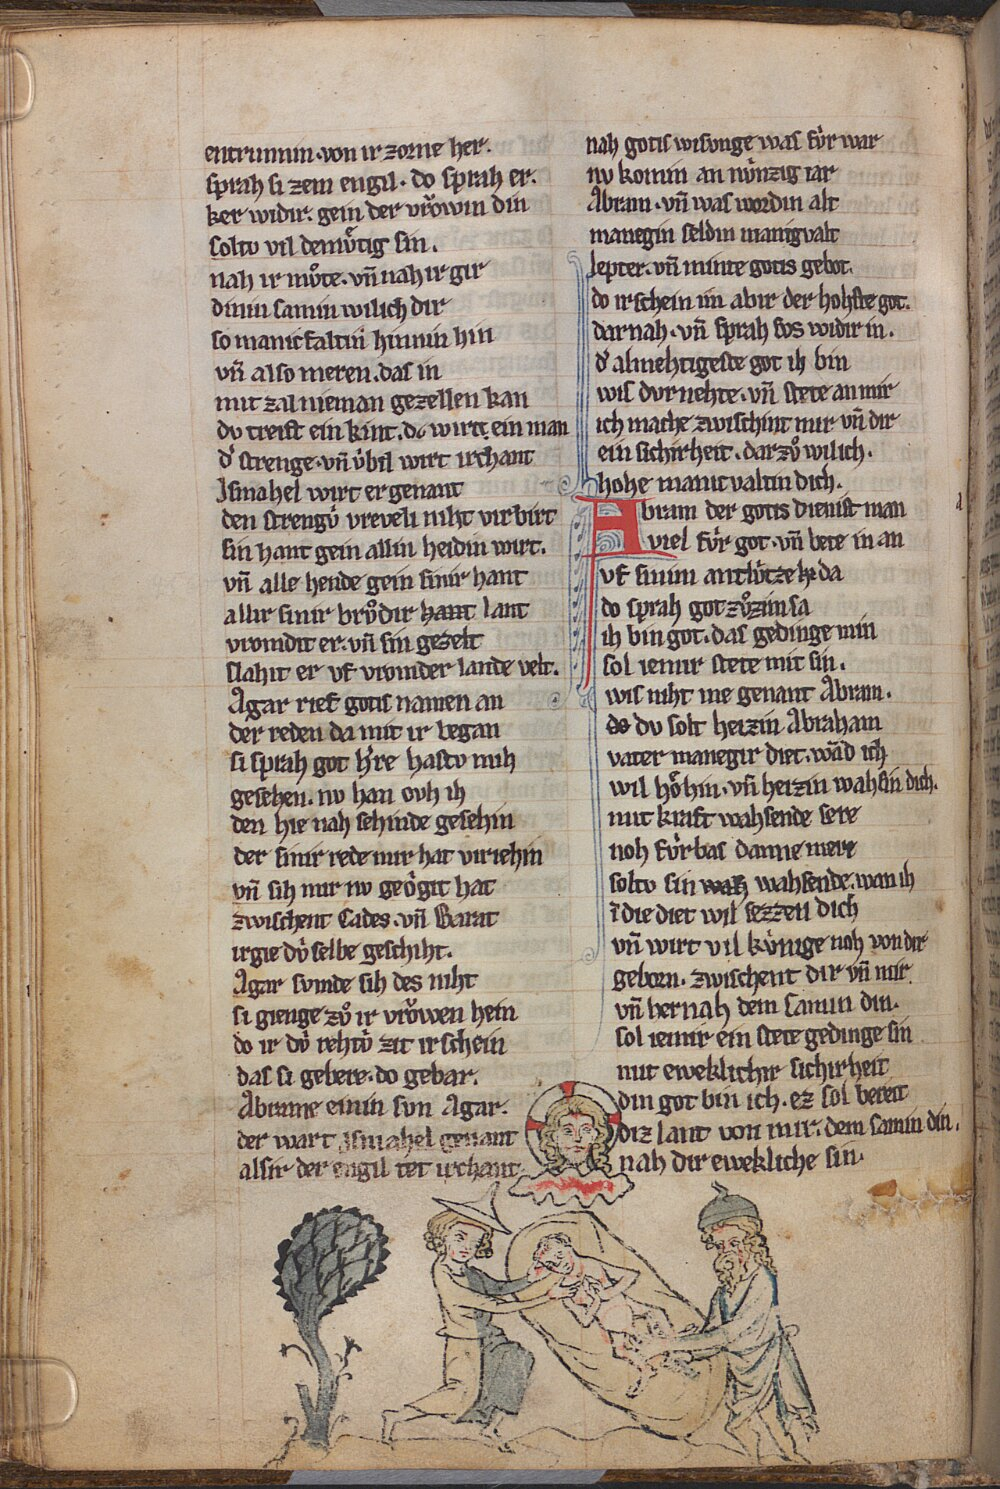 entrunnin·von ir zorne her.
sprah si zem engil· do sprah er.
ker widir. gein der vrowin din
solto vil demuͤtig sin.
nah ir muͦte· vn̄ nah ir gir
dinin samin wil ich dir
so manicfaltin hinnin hin
vn̄ also meren. das in
mit zal nieman gezellen kan
dv treist ein kint. d wirt ein man
dˢ strenge· vn̄ vbil wirt irchant
Ismahel wirt er genant
den strengv vreveli niht virbirt
sin hant gein allin heidin wirt.
vn̄ alle hende gein sinir hant
allir sinir bruͦdir hant lant
vromdit er· vn̄ sin gezelt
slahit er vf vromder lande velt.
Agar rief gotis namen an
der reden da mit ir began
si sprah got hˢre hasto mih
gesehen. nv han ovh ih
den hie nah sehinde gesehin
der sinir rede mir hat viriehin
vn̄ sih mir nv geoͤgit hat
zwischent Cades· vn̄ Barat
irgie dv selbe geschiht.
Agar svmde sih des niht
si gienge zuͦ ir vrowen hein
do ir dv rehtv zit irschein
das si gebere· do gebar.
Abrame einin svn Agar.
der wart Ismahel genant
als ir der engil tet irchant
nah gotis wisvnge was fvr war
nv komin an nvnzig iar
Abram· vn̄ was wordin alt
manegin seldin manigvalt
lepter· vn̄ minte gotis gebot.
do irschein im abir der hohste got.
dar nah· vn̄ sprah sos widir in.
dˢ almehtigeste got ih bin
wis dvrnehte· vn̄ stete an mir
ich mache zwischint mir vn̄ dir
ein sichirheit. dar zuͦ wil ich.
hohe manicvaltin dich.
Abram der gotis dienist man
viel fvr got· vn̄ bete in an
vf sinim antlvtze da
do sprah got zuͦzim sa
ih bin got. das gedinge min
sol iemir stete mit sin.
wis niht me genant Abram.
do dv solt heizin Abraham
vater manegir diet. wand ich
wil hoͤhin· vn̄ heizin wahsin dich.
mit kraft wahsende sere
noh fvrbas danne mere
solto sin wah wahsende. wan ih
ī die diet wil sezzen dich
vn̄ wirt vil kvnige noh von dir
geborn. zwischent dir vn̄ mir
vn̄ her nah dem samin din.
sol iemir ein stete gedinge sin
mit eweklichir sichirheit
din got bin ich. ez sol bereit
diz lant von mir. dem samin din.
nah dir ewekliche sin.